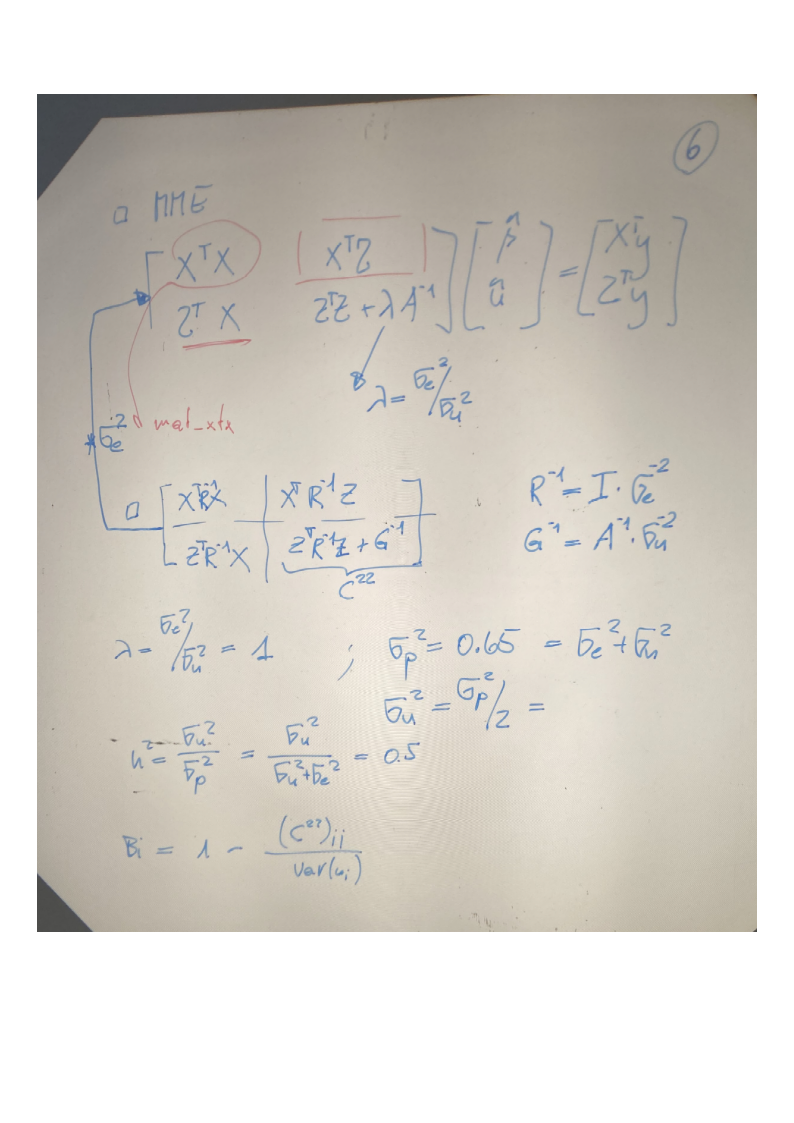 6
□ MME
[ XᵀX   XᵀZ ] [ β̂ ] = [ Xᵀy ]
[ Zᵀ X   ZᵀZ + λ A⁻¹ ] [ û ] [ Zᵀy ]
λ = σe²/σu²
* σe² mat_xtx
□ [ XᵀR⁻¹X | XᵀR⁻¹Z ]   R⁻¹ = I · σe⁻²
[ ZᵀR⁻¹X | ZᵀR⁻¹Z + G⁻¹ ]   G⁻¹ = A⁻¹ · σu⁻²
C²²
λ = σe²/σu² = 1 ; σp² = 0.65 = σe² + σu²
σu² = σp²/2 =
h² = σu²/σp² = σu²/(σu²+σe²) = 0.5
Bi = 1 - (C²²)ii / var(ui)